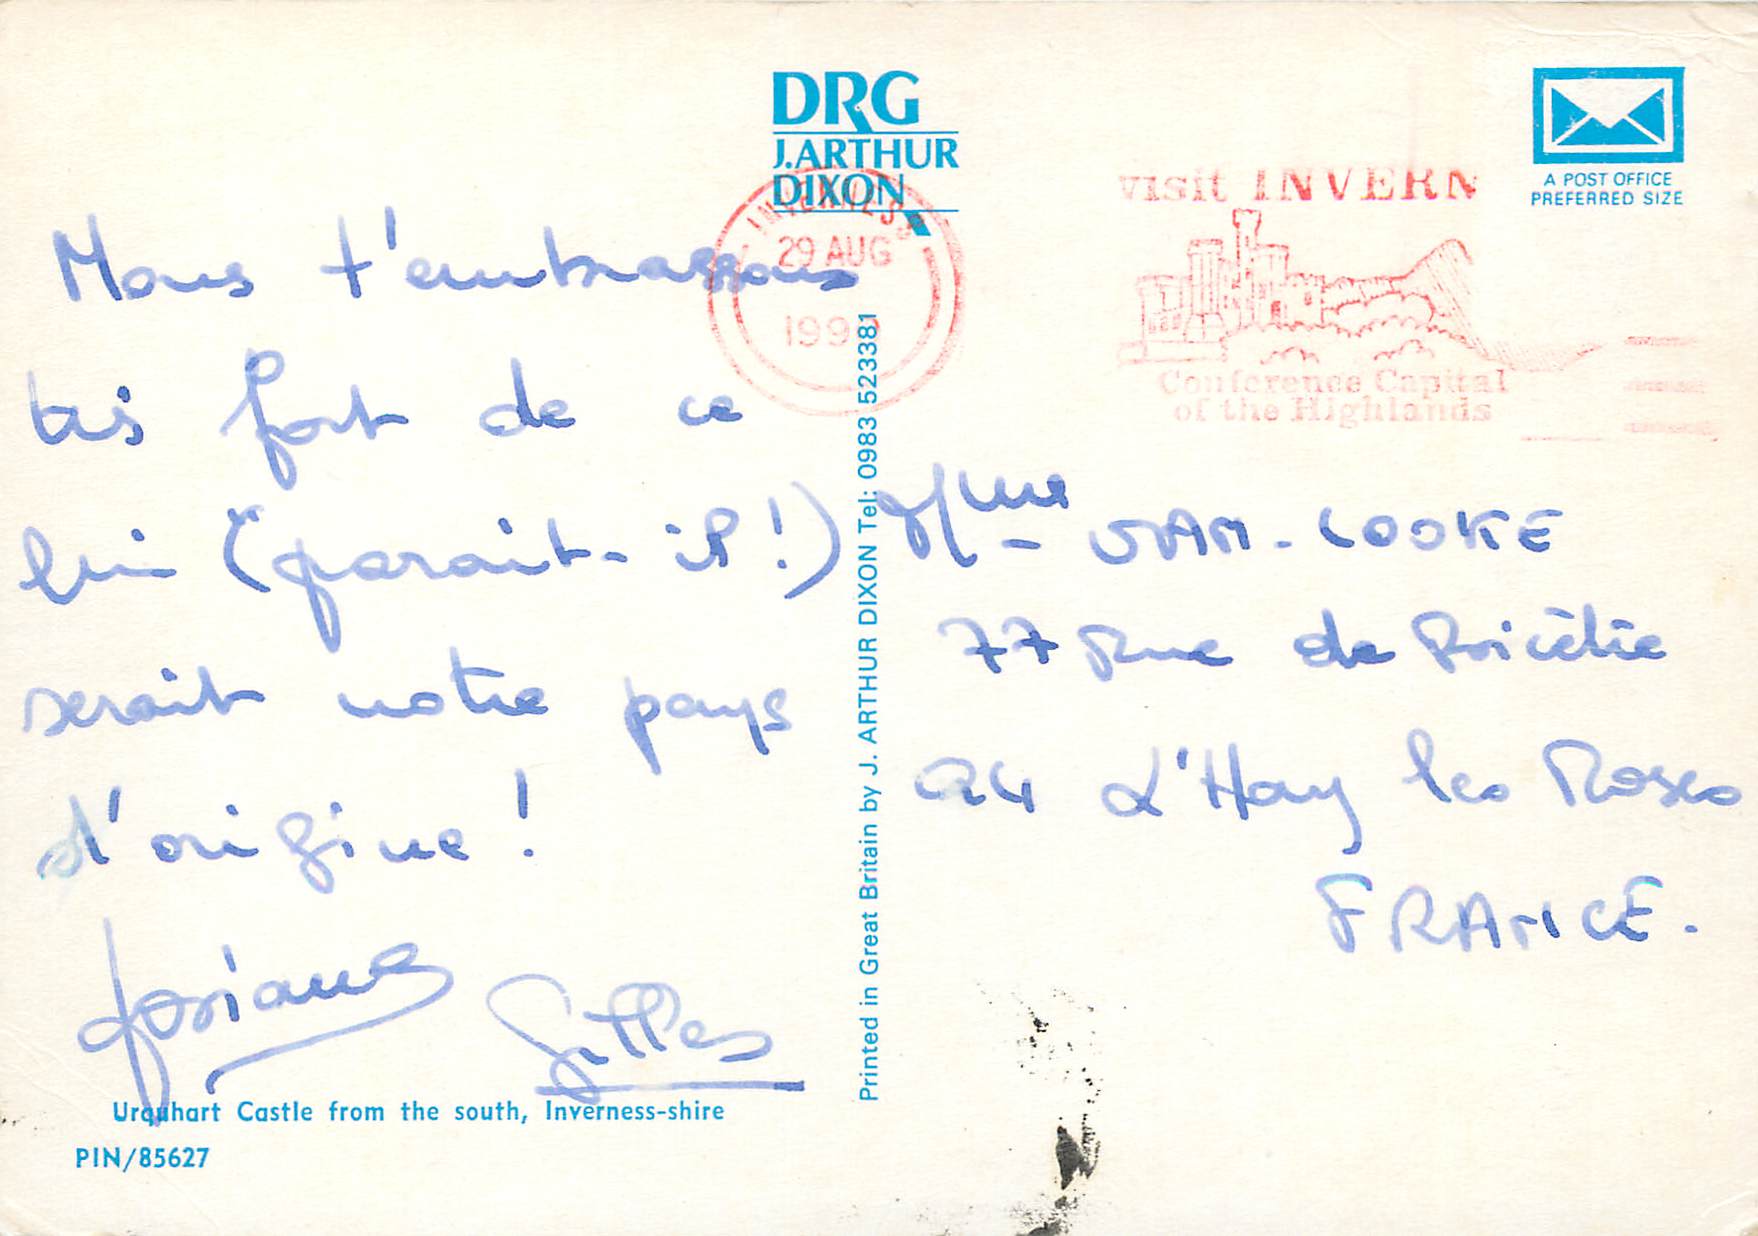 DRG
J.ARTHUR
DIXON
A POST OFFICE
PREFERRED SIZE
INVERNESS
29 AUG
199
visit INVERN
Conference Capital
of the Highlands
Nous t'embrassons
très fort de ce
lieu (parait-il!)
serait notre pays
d'origine !
Josiane Gilles
Mme VAN-COOKE
77 Rue de
94 L'Hay les Roses
FRANCE.
Printed in Great Britain by J. ARTHUR DIXON Tel: 0983 523381
Urquhart Castle from the south, Inverness-shire
PIN/85627